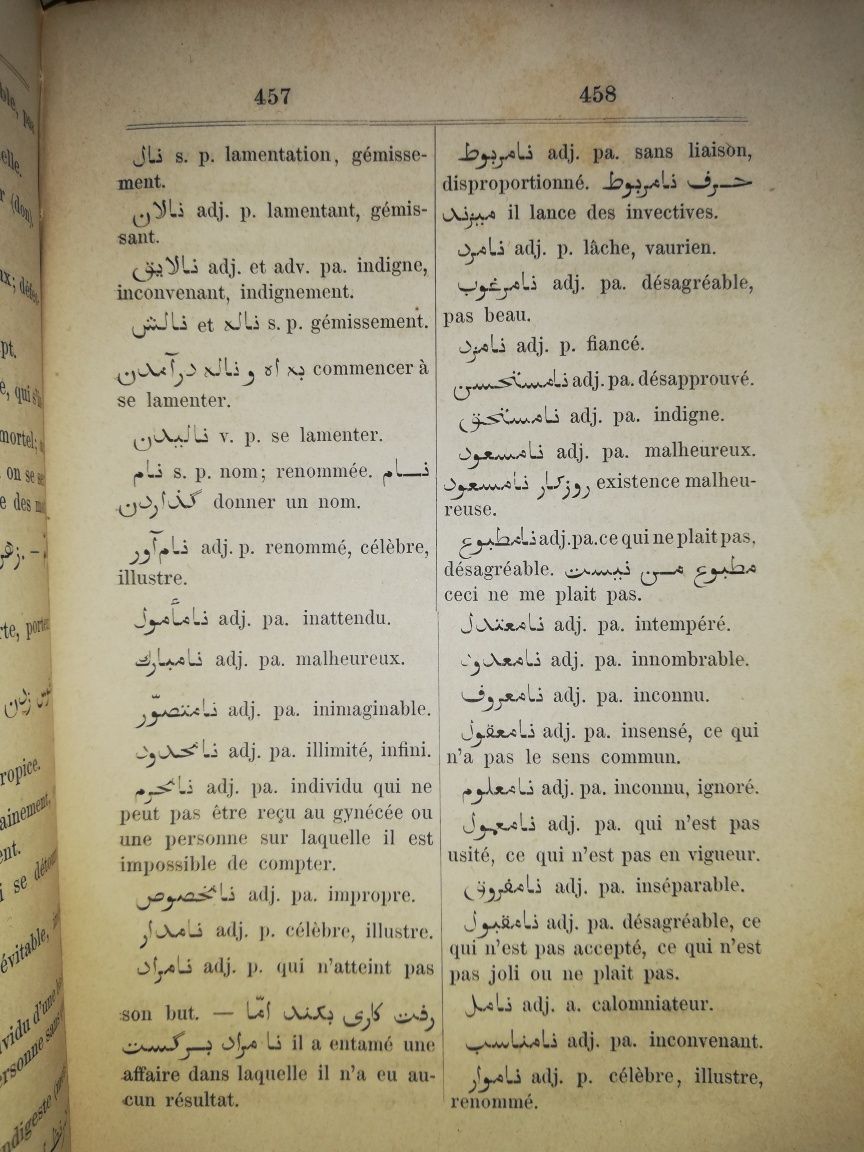 457
نال s. p. lamentation, gémisse-
ment.
نالان adj. p. lamentant, gémis-
sant.
نالایق adj. et adv. pa. indigne,
inconvenant, indignement.
نالش et ناله s. p. gémissement.
به اه و ناله درآمدن commencer à
se lamenter.
نالیدن v. p. se lamenter.
نام s. p. nom; renommée. نام
گذاردن donner un nom.
نام‌آور adj. p. renommé, célèbre,
illustre.
نامأمول adj. pa. inattendu.
نامبارك adj. pa. malheureux.
نامتصوّر adj. pa. inimaginable.
نامحدود adj. pa. illimité, infini.
نامحرم adj. pa. individu qui ne
peut pas être reçu au gynécée ou
une personne sur laquelle il est
impossible de compter.
نامخصوص adj. pa. impropre.
نامدار adj. p. célèbre, illustre.
نامراد adj. p. qui n'atteint pas
son but. — رفت کاری بکند امّا
نا مراد برگست il a entamé une
affaire dans laquelle il n'a eu au-
cun résultat.
458
نامربوط adj. pa. sans liaison,
disproportionné. حرف نامربوط
میزند il lance des invectives.
نامرد adj. p. lâche, vaurien.
نامرغوب adj. pa. désagréable,
pas beau.
نامزد adj. p. fiancé.
نامستحسن adj. pa. désapprouvé.
نامستحق adj. pa. indigne.
نامسعود adj. pa. malheureux.
روزکار نامسعود existence malheu-
reuse.
نامطبوع adj. pa. ce qui ne plait pas,
désagréable. مطبوع من نیست
ceci ne me plait pas.
نامعتدل adj. pa. intempéré.
نامعدود adj. pa. innombrable.
نامعروف adj. pa. inconnu.
نامعقول adj. pa. insensé, ce qui
n'a pas le sens commun.
نامعلوم adj. pa. inconnu, ignoré.
نامعمول adj. pa. qui n'est pas
usité, ce qui n'est pas en vigueur.
نامفروق adj. pa. inséparable.
نامقبول adj. pa. désagréable, ce
qui n'est pas accepté, ce qui n'est
pas joli ou ne plait pas.
نامل adj. a. calomniateur.
نامناسب adj. pa. inconvenant.
ناموار adj. p. célèbre, illustre,
renommé.